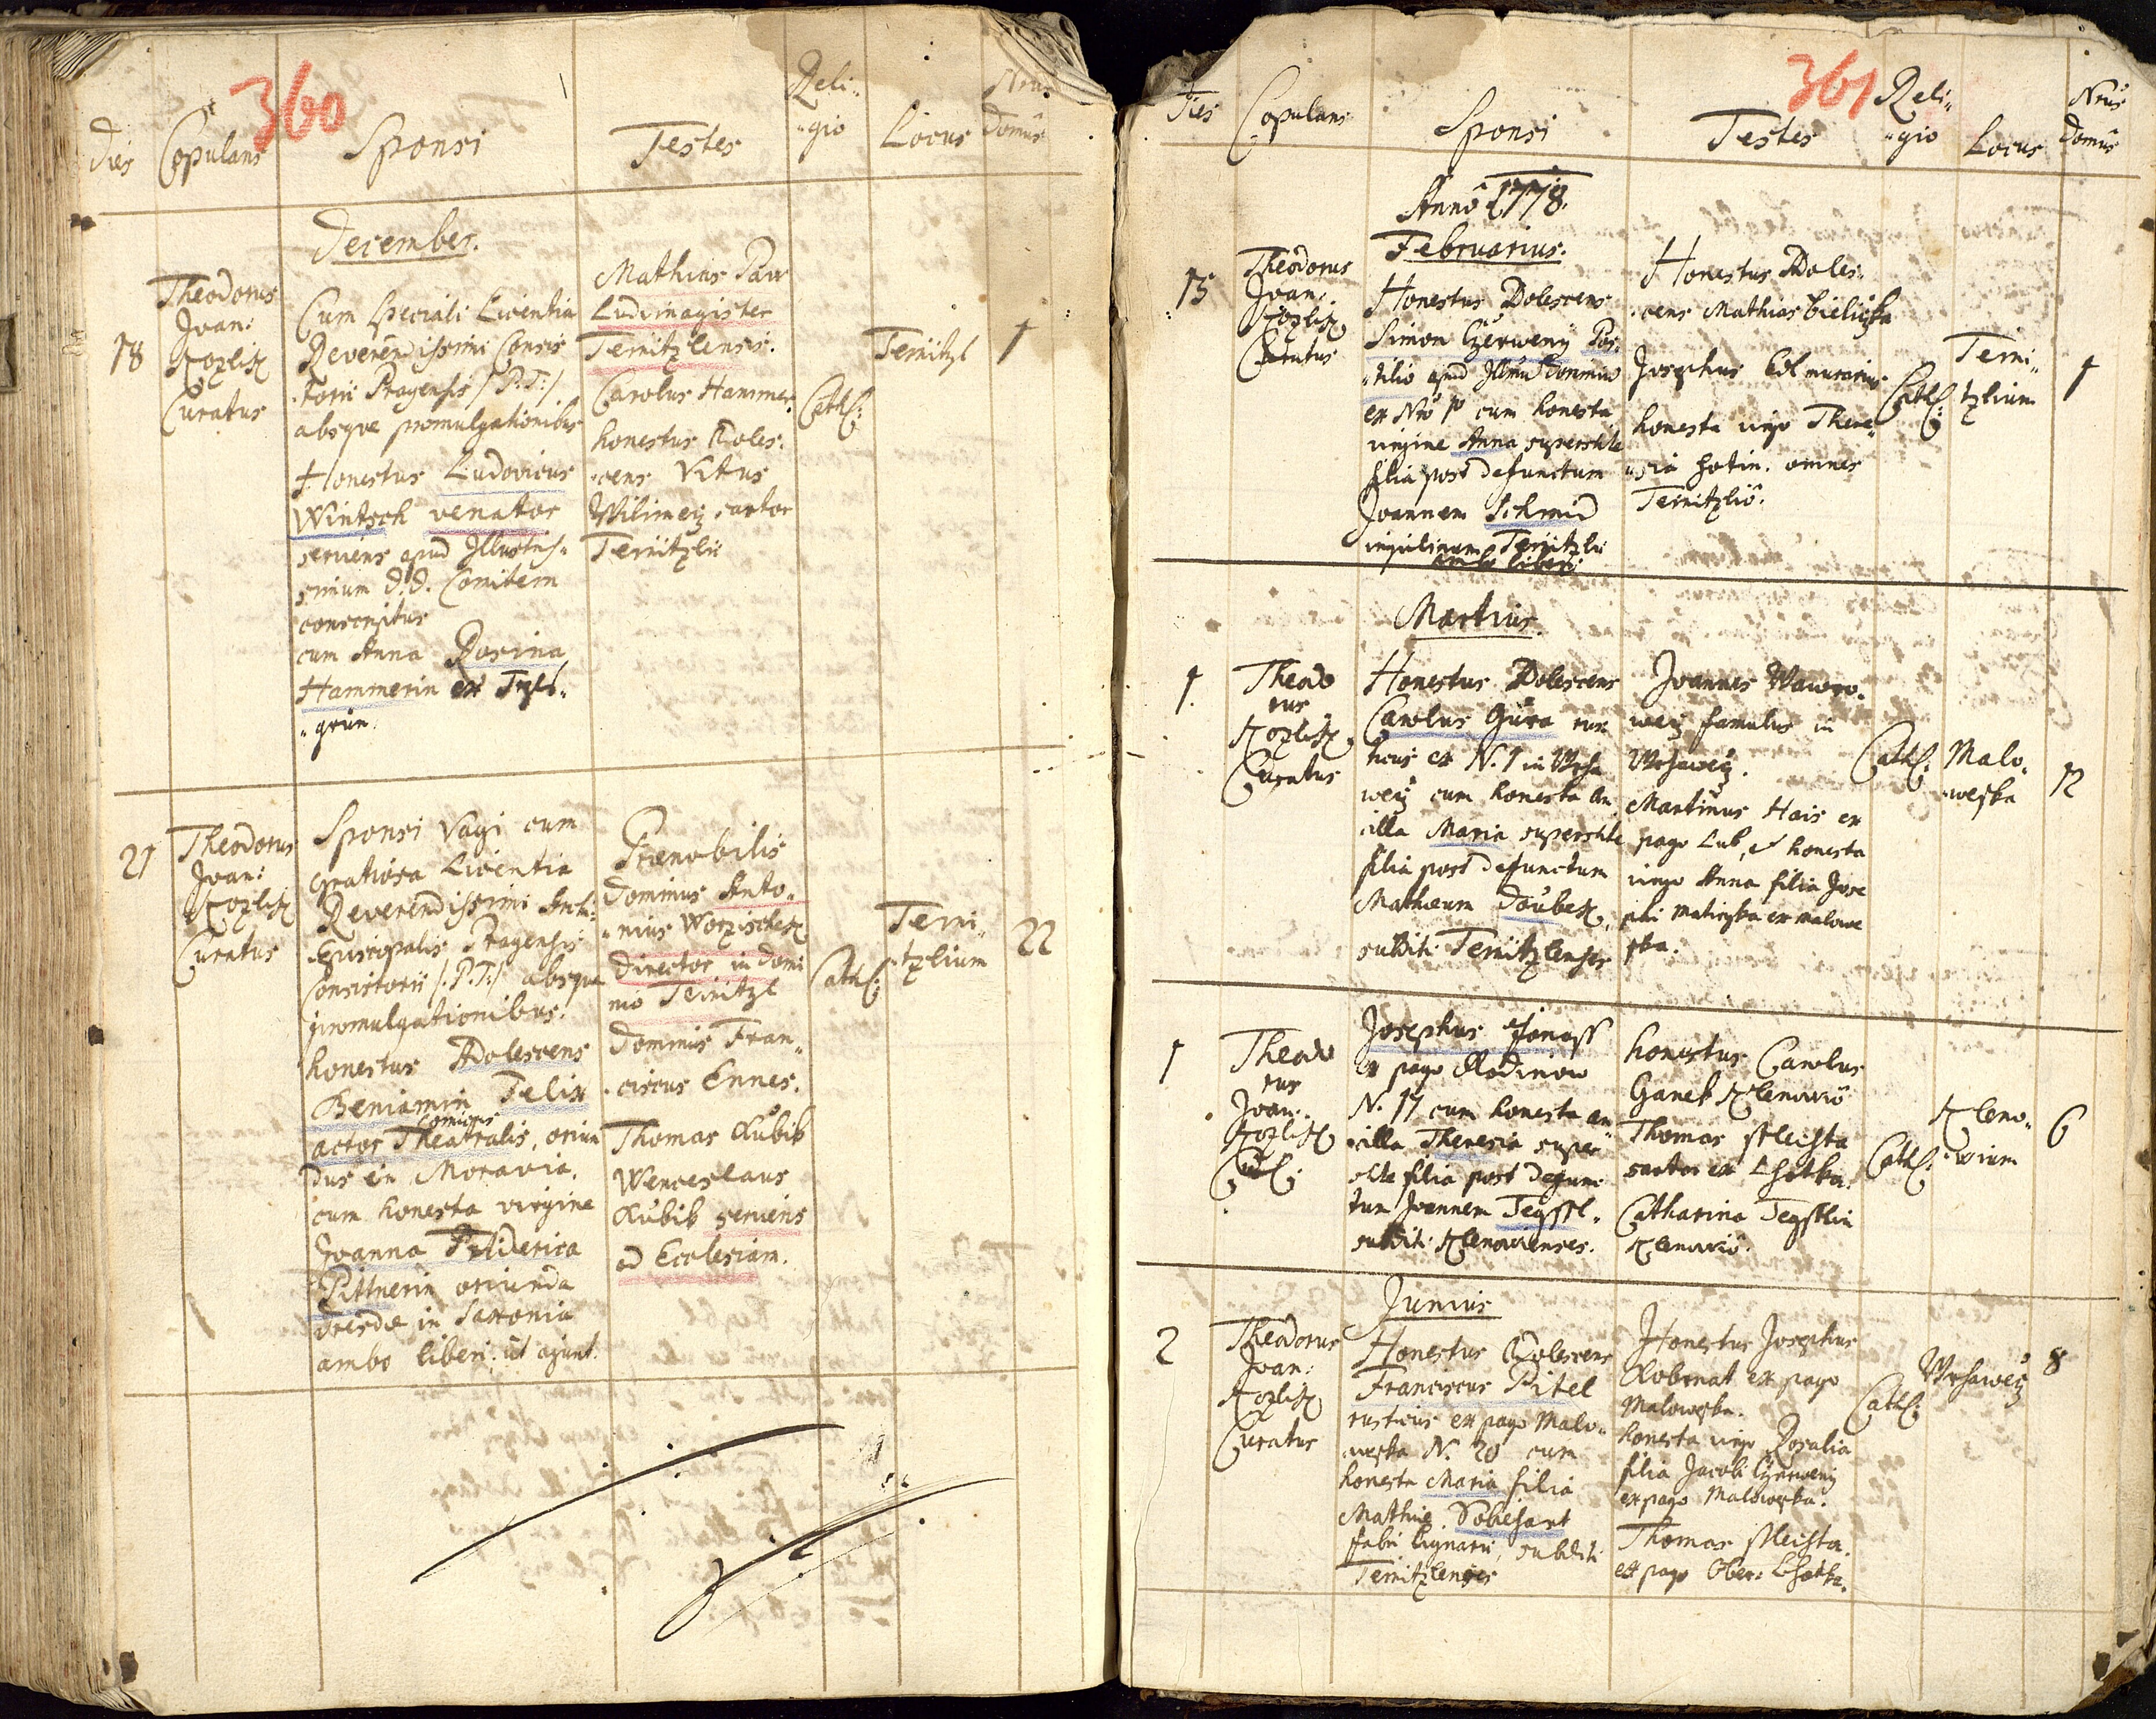 360
Dies Copulans Sponsi Testes Reli-
-gio Locus Nrus
Domus
December.
18
Theodorus
Joan:
Kozlik
Curatus
Cum speciali Licentia
Reverendissimi Consis
torii Pragensis /:P:T:/
absque promulgationibus
Honestus Ludovicus
Wintsch venator
serviens apud Illustris-
simum D.D. Comitem
conscriptus
cum Anna Rosina
Hammerin ex
-grün.
Mathias Paur
Ludimagister
Teinitzlensis.
Carolus Hammer
honestus Adoles-
cens Vitus
Wilimeg sartor
Teinitzlii
Cath:
Teinitzl
1
21
Theodorus
Joan:
Kozlik
Curatus
Sponsi Vagi cum
gratiosa Licentia
Reverendissimi Archi-
Episcopalis Pragensis
Consistorii /:P.T:/ absque
promulgationibus.
honestus Adolescens
Beniamin Felix
comicus
actor Theatralis, oriun
dus in Moravia.
cum honesta virgine
Joanna Friderica
Pittnerin oriunda
Dresdae in Saxonia
ambo liberi, ut ajunt.
Praenobilis
Dominus Anto-
-nius Worzischek
Director in domi
nio Teinitzl
Dominus Fran-
-ciscus Ennes.
Thomas Kubik
Wenceslaus
Kubik serviens
ad Ecclesiam.
Cath:
Teini-
-tzlium
22
361
Dies Copulans Sponsi Testes Reli-
-gio Locus Nrus
Domus
Anno 1778.
Februarius.
15
Theodorus
Joan:
Kozlik
Curatus
Honestus Adolescens
Simon Czerweny Pos-
-tilio apud Illmu Dominu
ex Nro 1o cum honesta
virgine Anna superstite
filia post defunctum
Joannem Schmid
inquilinum Teinitzlii
ambo liberi.
Honestus Adoles-
-cens Mathias Bieliczka
Josephus murarius
honesta virgo There-
-sia omnes
Teinitzlio.
Cath:
Teini-
tzlium
1
Martius.
1.
Theodo
rus
Kozlik
Curatus
Honestus Adolescens
Carolus Gura rus
ticus ex N. 1 in Wrha
weč cum honesta an
cilla Maria superstite
filia post defunctum
Mathaeum Daubek,
subditi Teinitzlenses
Joannes Wawro-
weg famulus in
Wrhaweč.
Martinus Hais ex
pago Lub, et honesta
virgo Anna filia Jose
phi Maticzka ex Malowe
ska.
Cath:
Malo-
-weska
12
1
Theodo
rus
Joan:
Kozlik
Josephus Jonass
ex pago Rodinow
N. 17 cum honesta an
cilla Theresia super
stite filia post defunc
tum Joannem Tegstl-
subditi Klenowienses.
honestus Carolus
Ganek Klenowio
Thomas Pleista
sartor ex Lhotka.
Catharina Tegstlin
Klenowio.
Cath:
Kleno-
-wium
6
Junius
2
Theodorus
Joan:
Kozlik
Curatus
Honestus Adolescens
Franciscus Pitel
rusticus ex pago Malo-
-weska N. 20 cum
honesta Maria filia
Mathiae Sobehart
fabri lignarii, subditi
Teinitzlenses
Honestus Josephus
ex pago
Maloweska.
honesta virgo Rosalia
filia Jacobi Czerweny
ex pago Maloweska.
Thomas Pleista
ex pago Ober: Lhotka.
Cath:
Wrhaweč
8